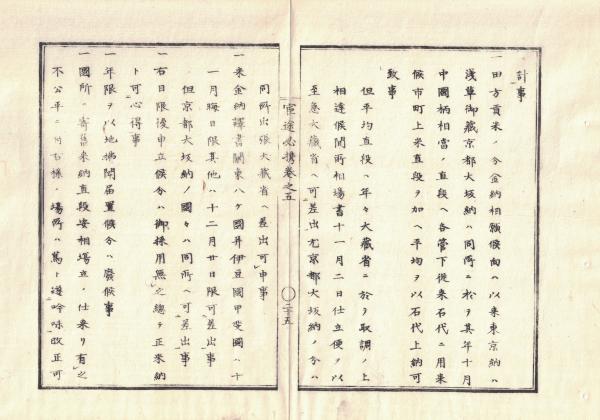 計事
一田方貢米ノ分金納相願候向ハ以来東京納ハ
浅草御蔵京都大坂納ハ同所ニ於テ其年十月
中国柄相當ノ直段ヘ各管下従来石代ニ用来
候市町上米直段ヲ加ヘ平均ヲ以石代上納可
致事
但平均直段ハ年々大蔵省ニ於テ取調ノ上
相達候間所相場書十一月二日仕立便ヲ以
至急大蔵省ヘ可差出尤京都大坂納ノ分ハ
宦途必携巻之五
〇二十五
同所出張大蔵省ヘ差出可申事
一来金納譯書関東八ケ國并伊豆國甲斐國ハ十
一月晦日限其他ハ十二月廿日限可差出事
但京都大坂納ノ國々ハ同所ヘ可差出事
一右日限後申立候分ハ御採用無之總テ正米納
ト可心得事
一年限ヲ以地摘問届置候分ハ廃候事
一國所ニ寄舊来納直段安相場立ノ仕来リ有之
不公平ニ付右様ノ場所ハ篤ト遂吟味改正可